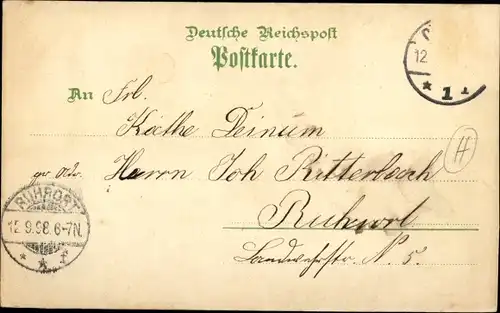 Deutsche Reichspost
Postkarte.
An Frl.
Käthe Deinum
pr Adr. Herrn Joh Ritterbach
Ruhrort
Landwehrstr. N. 5.
H
RUHRORT
12.9.98.6-7N.
* * 1
12
* 1